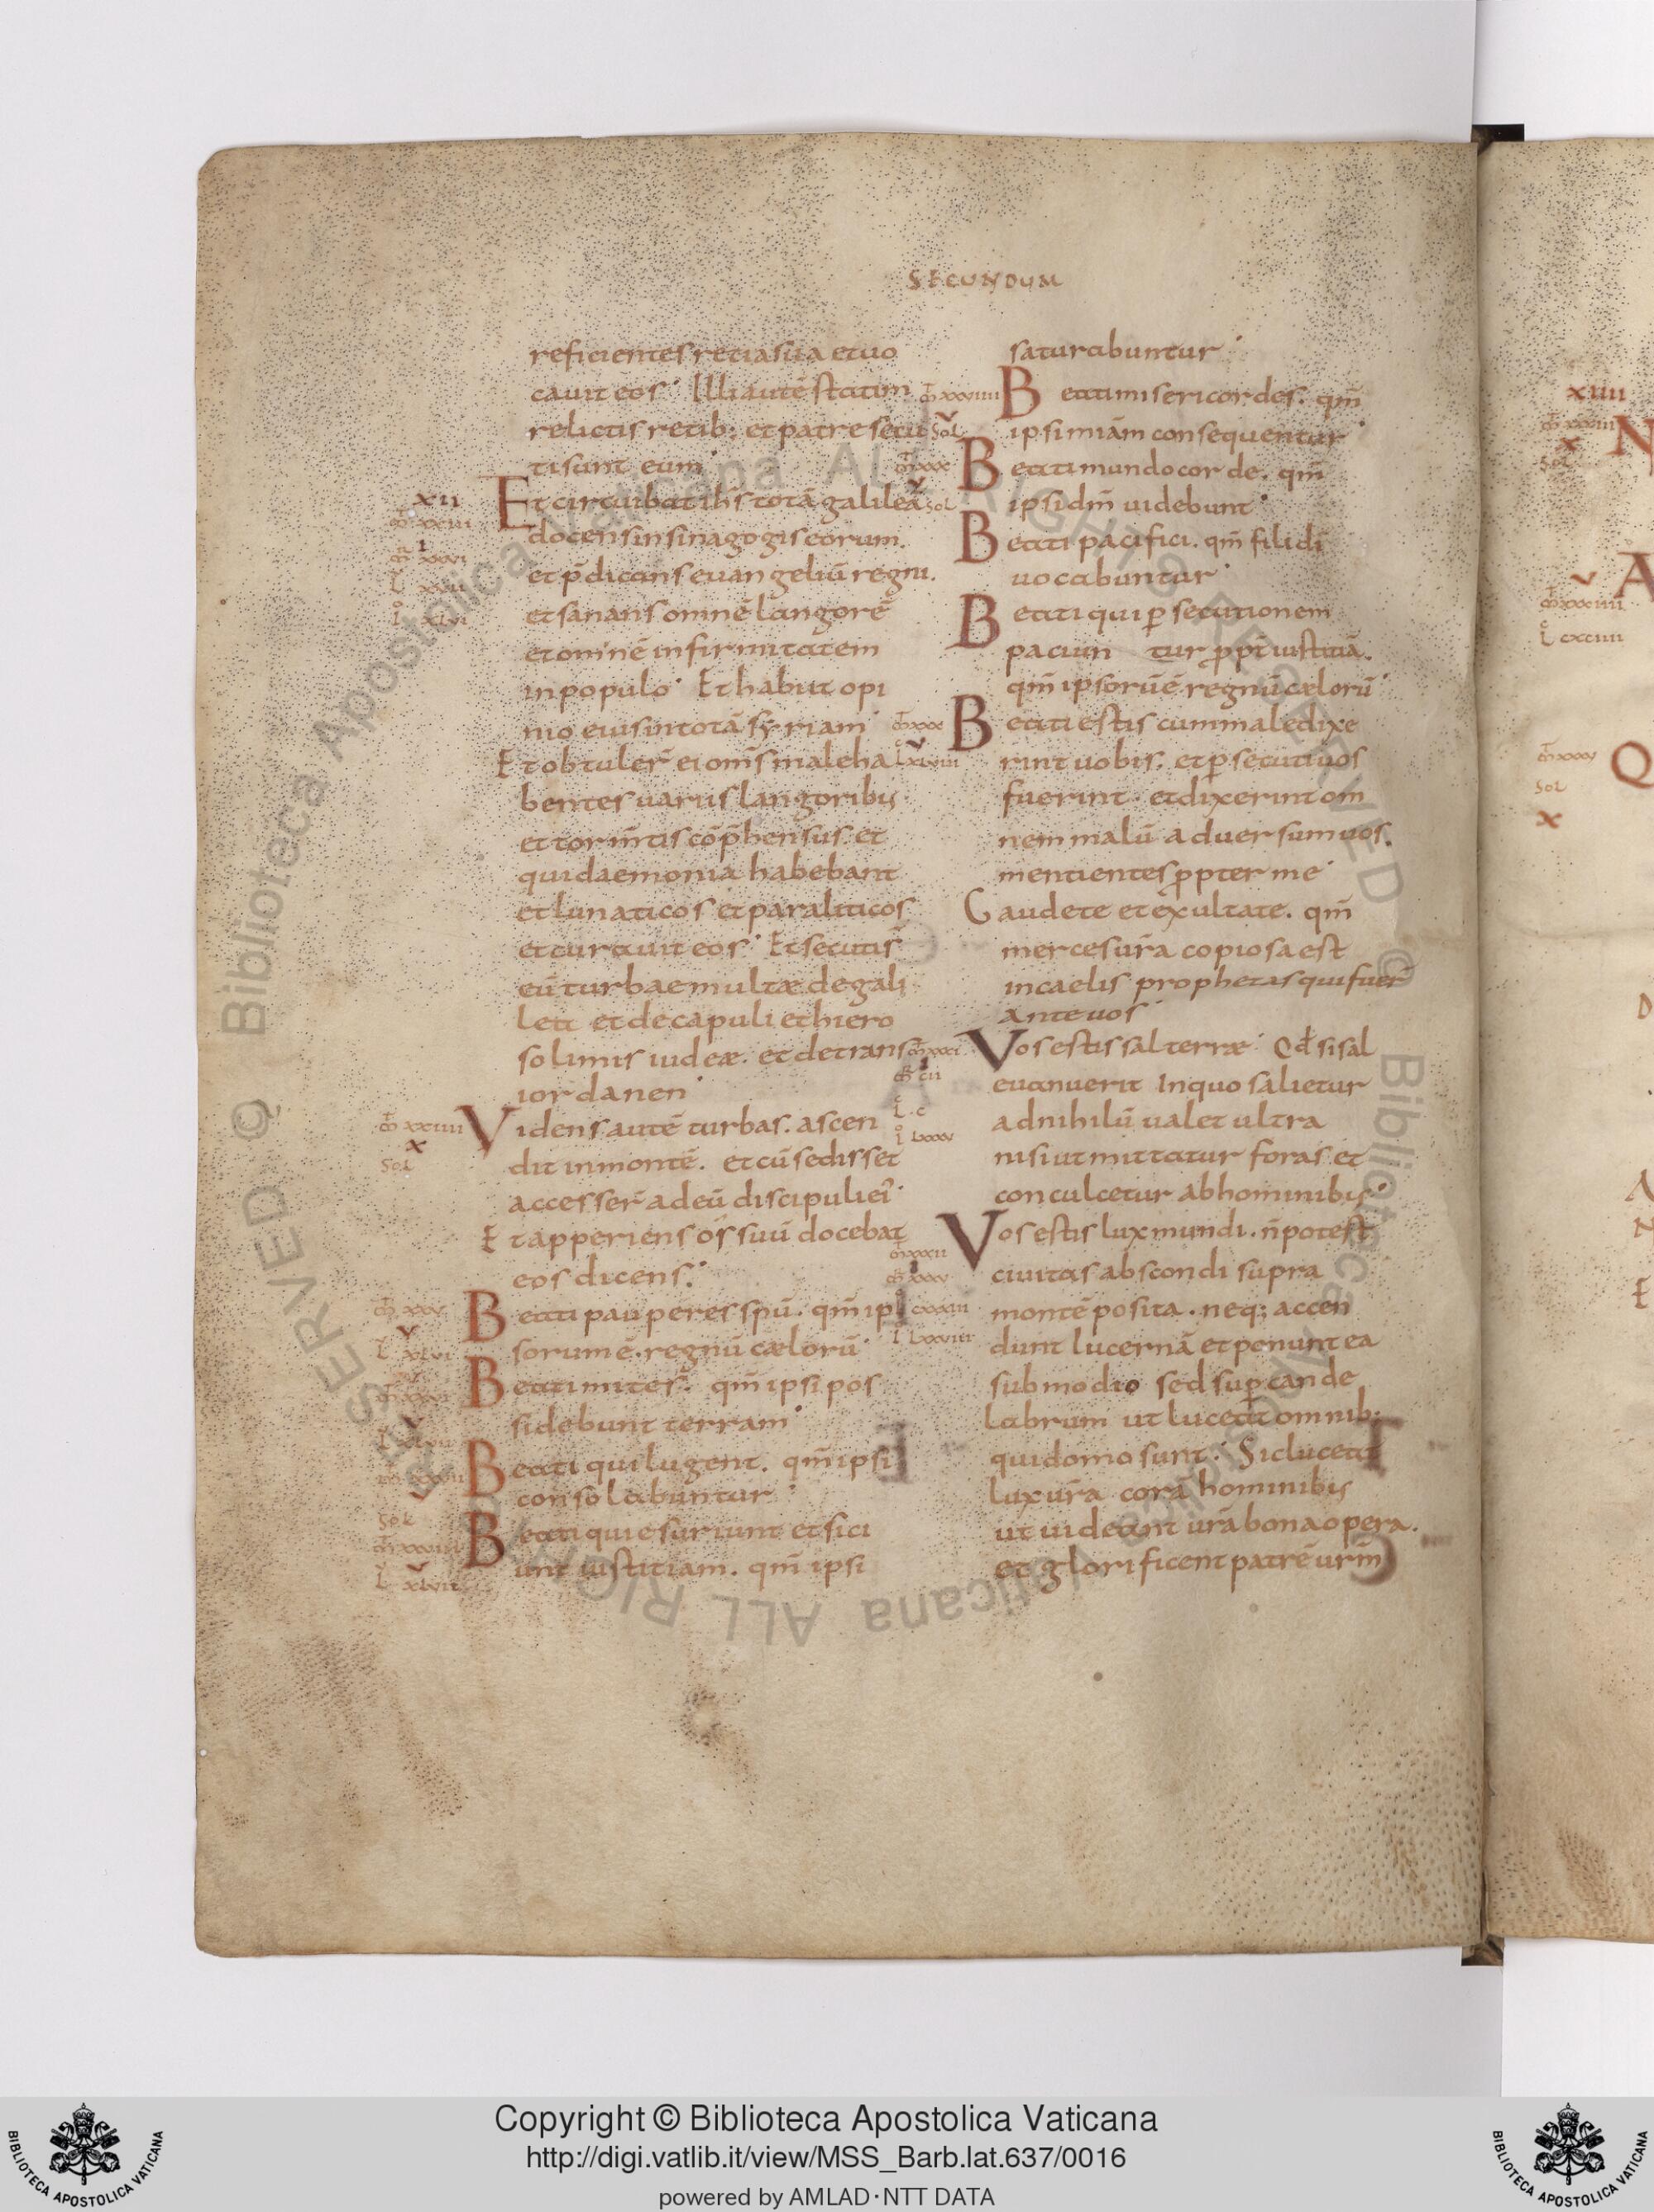 SECUNDUM
reficientes retia sua et uo
cauit eos· Illi autē statim
relictis retib; et patre secu
ti sunt eum·
xii
Et circuibat ihs̄ totā galileā
docens in sinagogis eorum.
et p̄dicans euangeliū regni.
et sanans omnē langorē
et omnē infirmitatem
in populo· Et habiit opi
nio eius in totā syriam·
Et obtuler̄ ei om̄s male ha
bentes uariis langoribus
et torm̄tis cōp̄hensus. et
qui daemonia habebant
et lunaticos et paraliticos
et curauit eos· Et secuti s̄
eū turbae multæ de gali
lea et decapuli et hiero
solimis iudeæ. et de trans
iordanen·
Videns autē turbas. ascen
dit in montē. et cū sedisset
accesser̄ ad eū discipuli ei·
Et apperiens os suū docebat
eos dicens·
Beati pauperes spū. qm̄ ip
sorum ē. regnū cælorū·
Beati mites. qm̄ ipsi pos
sidebunt terram·
Beati qui lugent. qm̄ ipsi
consolabuntur·
Beati qui esuriunt et sici
unt iustitiam. qm̄ ipsi
saturabuntur·
Beati misericordes. qm̄
ipsi miām consequentur·
Beati mundo corde. qm̄
ipsi dm̄ uidebunt·
Beati pacifici. qm̄ fili dī
uocabuntur·
Beati qui p̱secutionem
paciun tur ꝓpt̄ iustitiā.
qm̄ ipsorū ē regnū cælorū·
Beati estis cum maledixe
rint uobis. et p̱secuti uos
fuerint. et dixerint om
nem malū aduersum uos.
mentientes ꝓpter me·
Gaudete et exultate. qm̄
merces ur̄a copiosa est
in caelis prophetas qui fuer̄
ante uos·
Vos estis sal terræ· Qd̄ si sal
euanuerit in quo salietur
ad nihilū ualet ultra
nisi ut mittatur foras et
conculcetur ab hominibus·
Vos estis lux mundi. n̄ potest
ciuitas abscondi supra
montē posita. neq; accen
dunt lucernā et ponunt ea
sub modio sed sup̱ cande
labrum ut luceat omnib;
qui domo sunt· Sic luceat
lux ur̄a corā hominibus
ut uideant ur̄a bona opera.
et glorificent patrē ur̄m
xiiii
Copyright © Biblioteca Apostolica Vaticana
http://digi.vatlib.it/view/MSS_Barb.lat.637/0016
powered by AMLAD·NTT DATA
BIBLIOTECA APOSTOLICA VATICANA
BIBLIOTECA APOSTOLICA VATICANA